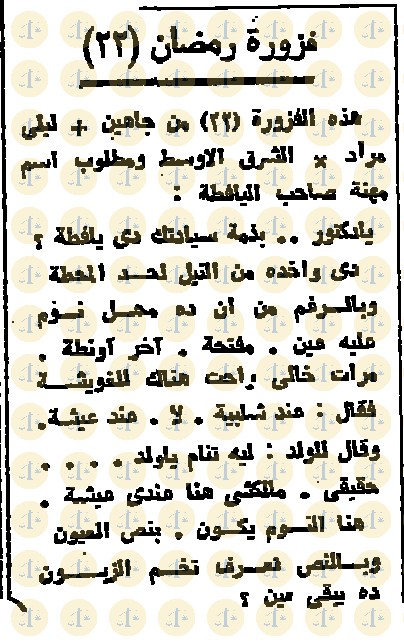 فزورة رمضان (٢٢)
هذه الفزورة (٢٢) من جاهين + ليلى
مراد × الشرق الاوسط ومطلوب اسم
مهنة صاحب اليافطة :
يادكتور .. بذمة سيادتك دى يافطة ؟
دى واخده من النيل لحد المحطة
وبالرغم من ان ده محل نوم
عليه عين . مفتحة . آخر أونطة .
مرات خالى راحت هناك للفويشة
فقال : عند شلبية . لا . عند عيشة .
وقال للولد : ليه تنام ياولد . . . .
حقيقى . مالكشى هنا عندى عيشة .
هنا النوم يكون . بنص العيون
وبالنص تعرف تخم الزبون
ده يبقى مين ؟